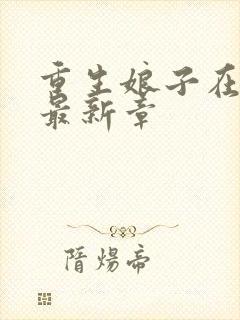 重生娘子在
最新章
隋炀帝